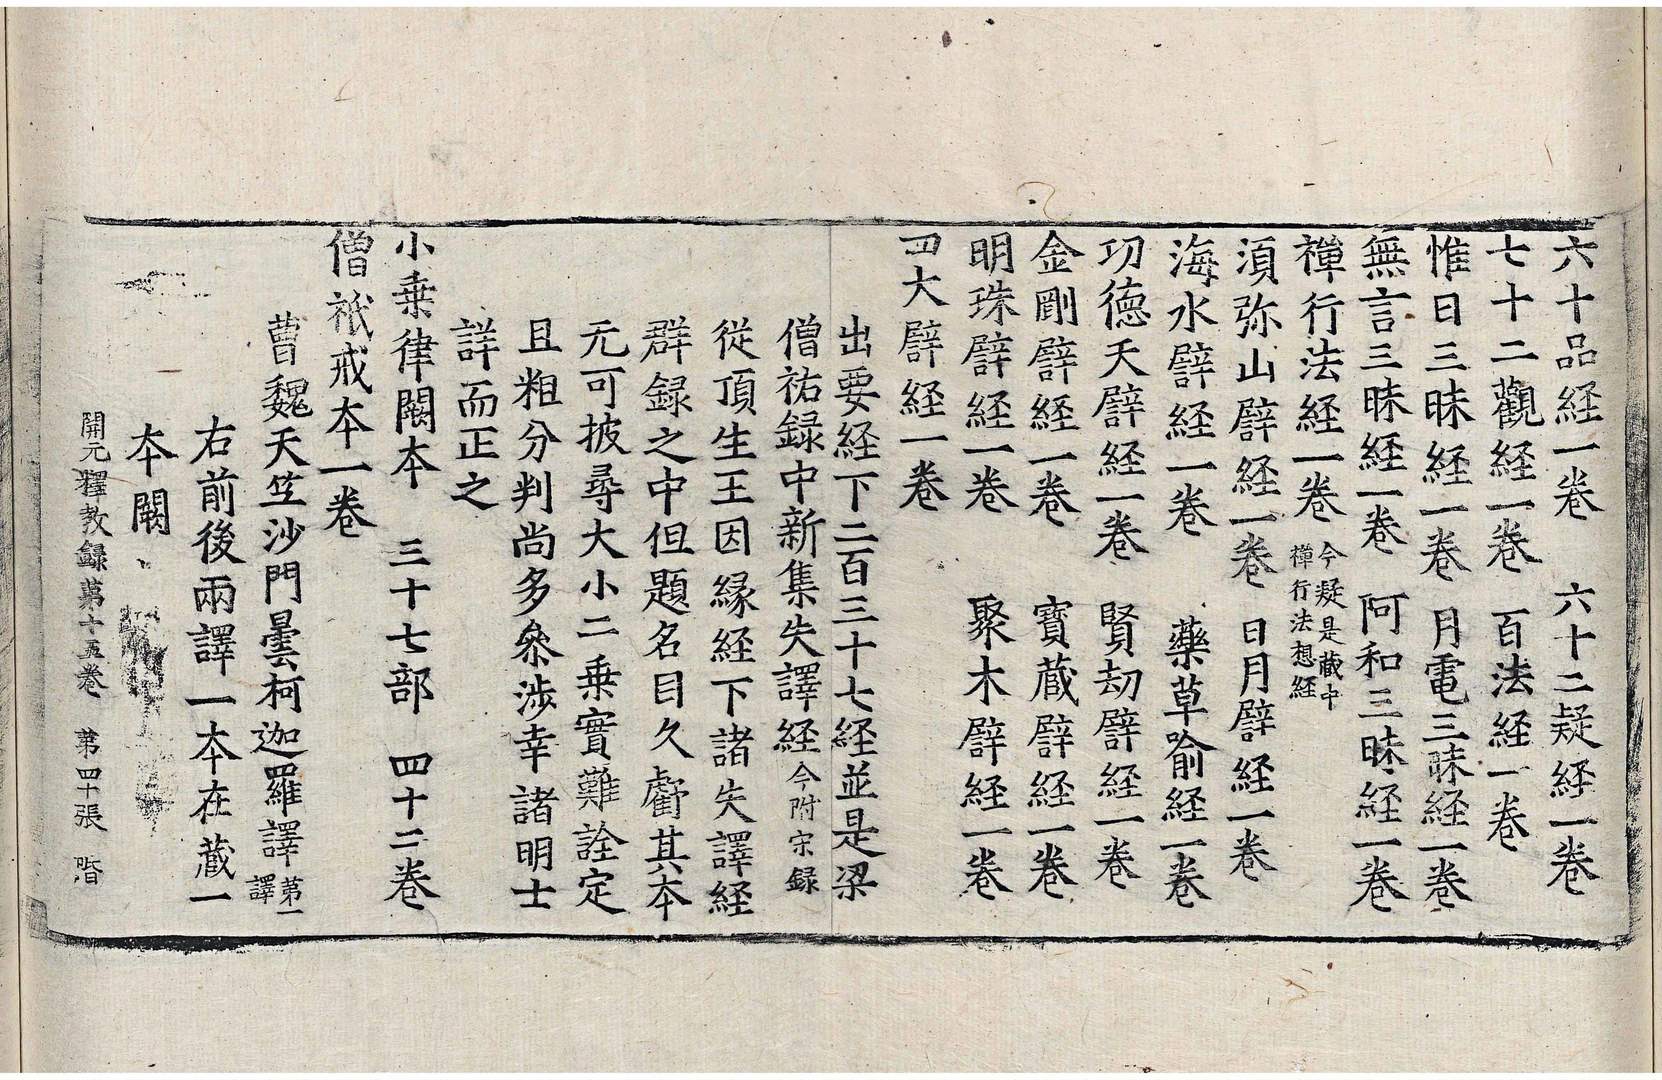 六十品経一卷　六十二疑経一卷
七十二觀経一卷　百法経一卷
惟日三昧経一卷　月電三昧経一卷
無言三昧経一卷　阿和三昧経一卷
禪行法経一卷 今疑是藏中禪行法想経
須弥山譬経一卷　日月譬経一卷
海水譬経一卷　藥草喻経一卷
功德天譬経一卷　賢劫譬経一卷
金剛譬経一卷　寶藏譬経一卷
明珠譬経一卷　聚木譬経一卷
四大譬経一卷
出要経下二百三十七経並是梁
僧祐録中新集失譯経 今附宋録
從頂生王因縁経下諸失譯経
群録之中但題名目久虧其本
无可披尋大小二乗實難詮定
且粗分判尚多叅涉幸諸明士
詳而正之
小乗律闕本　三十七部　四十二卷
僧祇戒本一卷
曹魏天竺沙門曇柯迦羅譯 第一譯
右前後兩譯一本在藏一
本闕
開元釋教録第十五卷　第四十張　階